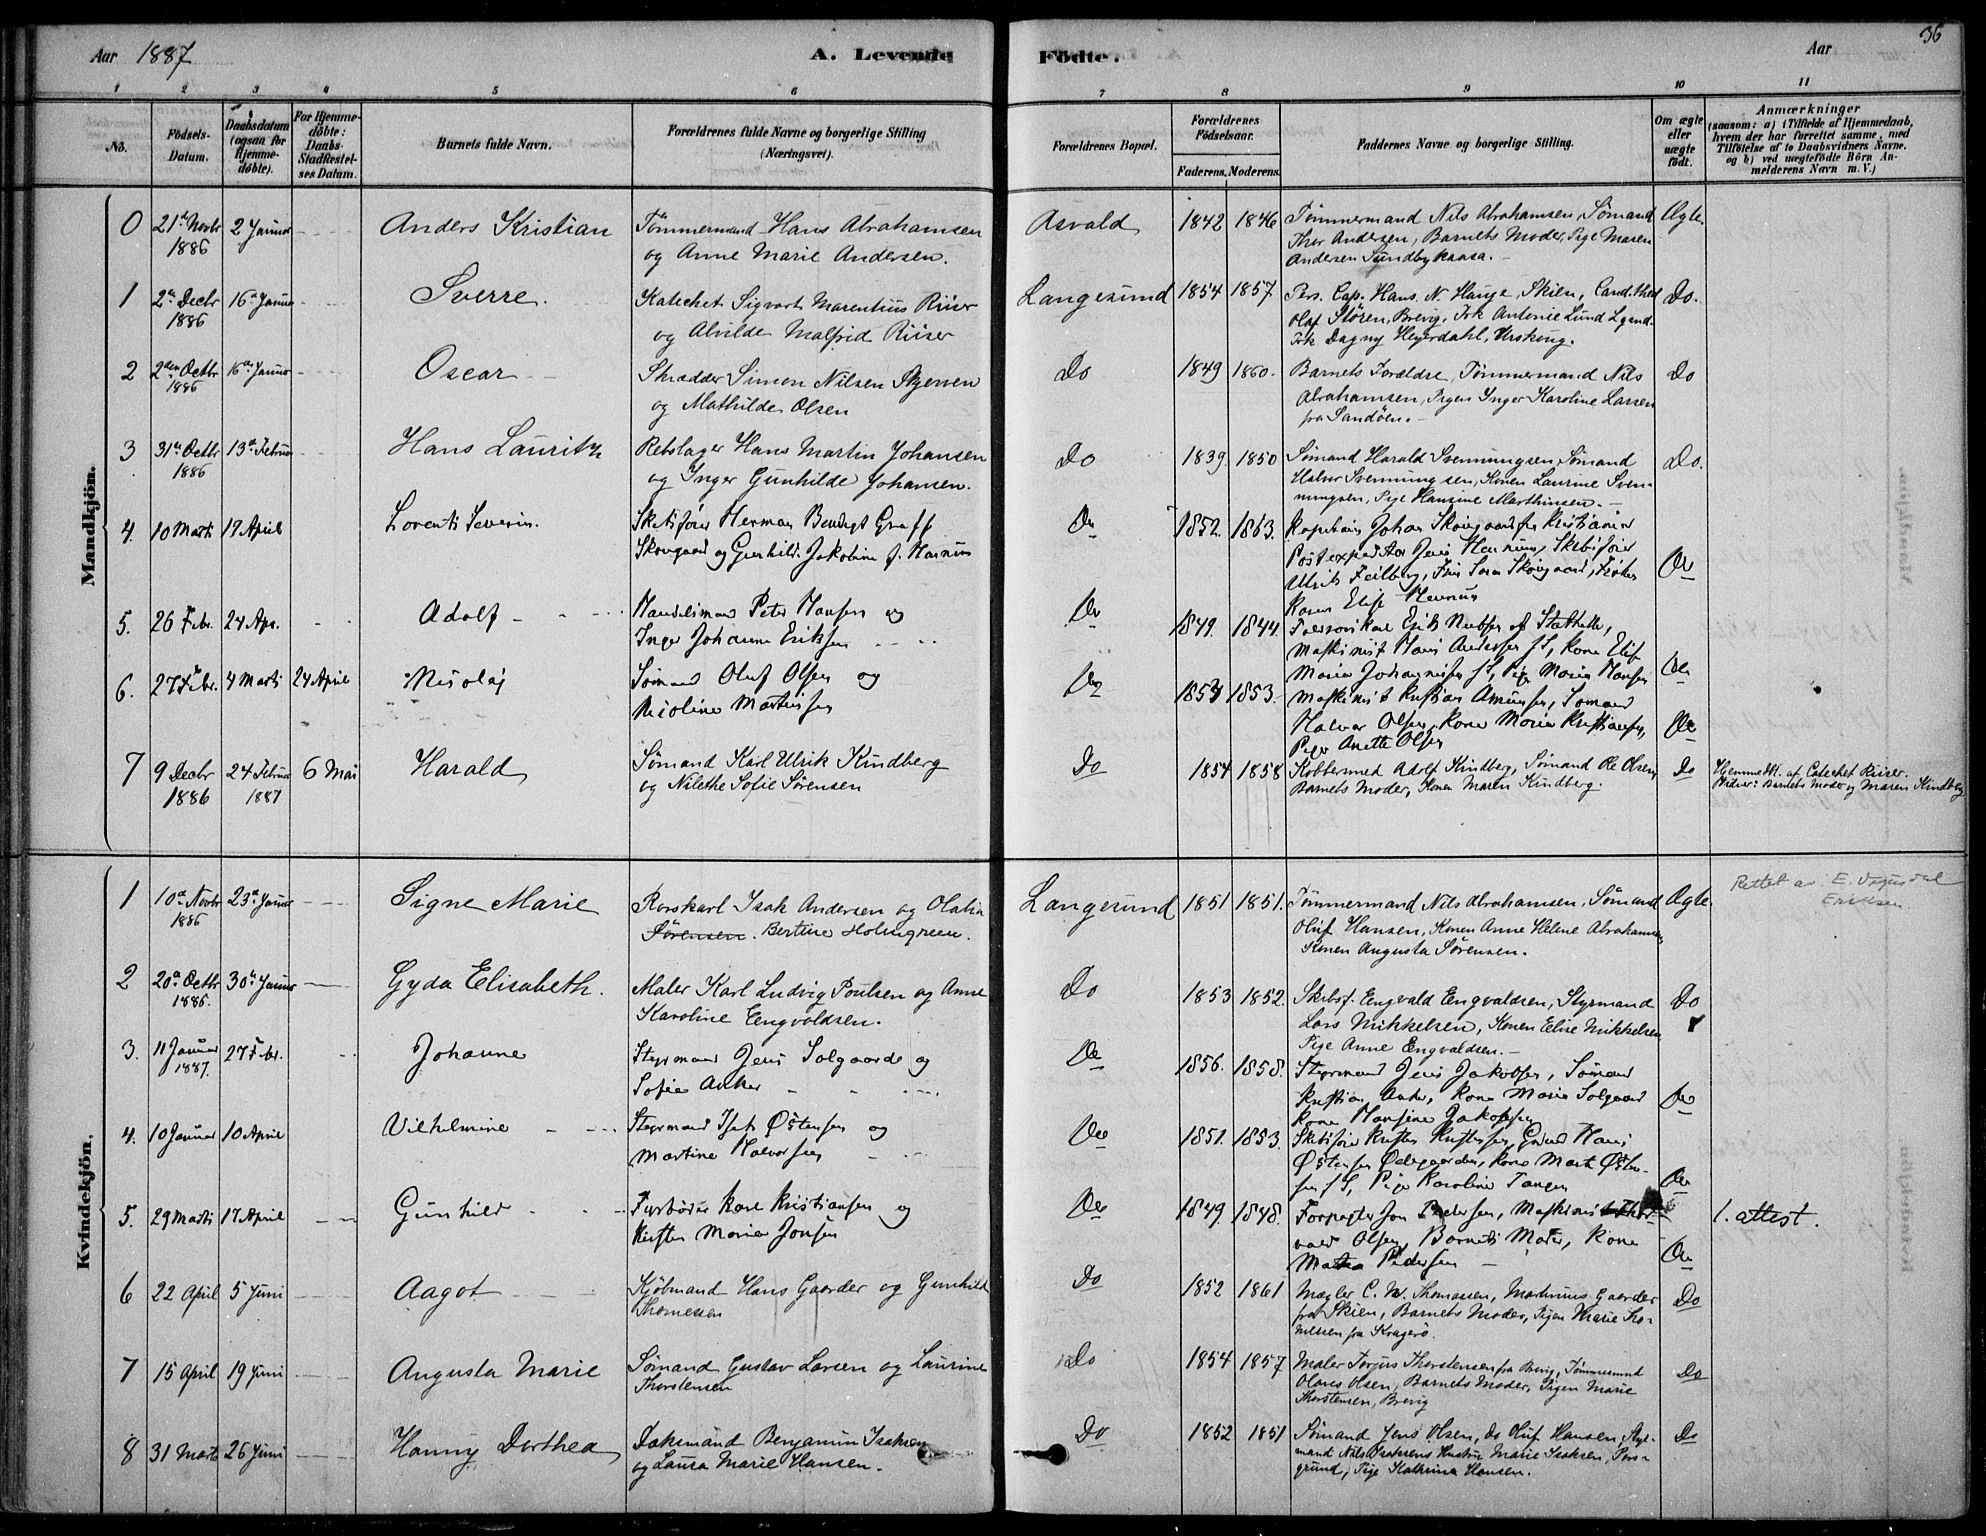 Aar 1887
A. Levende Födte.
Aar
36
1 2 3 4 5 6 7 8 9 10 11
No.
Födsels-Datum.
Daabsdatum (ogsaa for Hjemme-döbte).
For Hjemme-döbte: Daabs-Stadfæstel-ses Datum.
Barnets fulde Navn.
Forældrenes fulde Navne og borgerlige Stilling (Næringsvei).
Forældrenes Bopæl.
Forældrenes Födselsaar.
Faderens. Moderens.
Faddernes Navne og borgerlige Stilling.
Om ægte eller uægte födt.
Anmærkninger
(saasom: a) i Tilfælde af Hjemmedaab, hvem der har forrettet samme, med Tilföielse af to Daabsvidners Navne. og b) ved uægtefödte Börn An-melderens Navn m. V.)
Mandkjön.
0 21de Novbr 1886 2 Januar Anders Kristian
Tømmermand Hans Abrahamsen
og Anne Marie Andersen.
Asvald 1842 1846
Tømmermand Nils Abrahamsen, Sømand
Thor Andersen, Barnets Moder, Pige Maren
Andersen Sundbykaasa.
Ægte
1 2de Decbr 1886 16de Januar Sverre
Katechet Sigvart Marentius Riiser
og Alvilde Malfrid Riiser
Langesund 1854 1857
Pers. Cap. Hans N. Hauge, Skien, Cand. theol
Olaf Stören, Brevig, Frk Antonie Lund Lgsnd.
Frk Dagny Heyerdahl, Urskoug.
Do.
2 2den Octbr 1886 16de Januar Oscar
Skrædder Simon Nilsen Skjerven
og Mathilde Olsen
Do 1849 1860
Barnets Forældre, Tømmermand Nils
Abrahamsen, Pigen Inger Karoline Larsen
fra Sandöen.
Do
3 31te Octbr 1886 13de Februar Hans Lauritz
Rebslager Hans Martin Johansen
og Inger Gunhilde Johansen.
Do 1839 1850
Sømand Harald Svenningsen, Sømand
Halvor Svenningsen, Konen Laurine Sven-
ningsen, Pige Hansine Marthinsen.
Do.
4. 10 Marts 17 April Lorents Severin.
Skibsfører Herman Bendigt Graff
Skovgaard og Gunhild Jakobine f. Harnus
Do 1852. 1863.
Kaptain Johan Skovgaard fra Kristiania
Postexpeditør Jens, Skibsfører
Ulrik Feilberg, Skovgaard,
Karen Elise
Do
5. 26 Febr. 24 Apr. Adolf
Handelsmand Peter Hansen og
Inger Johanne Eriksen
Do 1849. 1844.
Erik af Stathelle,
Maskinist Hans Andersen, Kone Elise
Marie Johannesen, Pige Maria Hansen
Do
6. 27 Febr. 4 Marts 24 April Nicolaj
Sømand Oluf Olsen og
Nicoline Martinsen
Do 1854 1853.
Maskinist Kristian Amundsen, Sømand
Halvor Olsen, Kone Maria Kristiansen,
Pige Anette Olsen
Do
7 9 Decbr 1886 24 Februar 1887 6 Mai Harald
Sømand Karl Ulrik Kindberg
og Nilethe Sofie Sørensen
Do 1854 1858
Kobbersmed Adolf Kindberg, Sømand Ole Olsen,
Barnets Moder, Konen Maren Kindberg.
Do
Hjemmedbt. af Catechet Riiser.
Vidner: Barnets Moder og Maren Kindberg
Kvindekjön.
1 10de Novbr 1886 23de Januar Signe Marie
Rorskarl Isak Andersen og Olatia
Sørensen. Bertine Holmgreen.
Langesund 1851 1851.
Tømmermand Nils Abrahamsen, Sömand
Oluf Hansen, Konen Anne Helene Abrahamsen,
Konen Augusta Sørensen.
Ægte
Rettet av E. Vegusdal
Eriksen
2 20de Octbr 1886. 30te Januar Gyda Elisabeth.
Maler Karl Ludvig Poulsen og Anne
Karoline Eengvoldsen.
Do 1853 1852.
Skibsf. Engvald Engvaldsen, Styrmand
Lars Mikkelsen, Konen Eelise Mikkelsen,
Pige Anne Engvaldsen.
Do
3. 11 Januar 1887. 27 Febr. Johanne
Styrmand Jens Solgaard og
Sofie Anker
Do 1856. 1858.
Styrmand Jens Jakobsen, Sømand
Kristian Anker, Kone Maria Solgaard
Kone Hansine Jakobsen
Do
4. 10 Januar 10 April Vilhelmine
Styrmand Isak Østensen og
Martine Halvorsen
Do 1851. 1853.
Skibsfører Kristen Kristensen, Gaard Hans
Østensen Ødegaarden, Kone Marte Østen-
sen, Pige Karoline Tangen
Do
5. 29 Marts 17 April Gunhild
Fyrbøder Karl Kristiansen og
Kirsten Maria Jonsen
Do 1849. 1848.
Forpagter Jon Pedersen, Maskinist Thor-
vald Olsen, Barnets Moder, Kone
Pedersen
Do
1. attest.
6 22 April 5 Juni Aagot
Kjöbmand Hans Gaarder og Gunhild
Thomessen
Do 1852 1861
Mægler C. W. Thomassen, Martinius Gaarder
fra Skien, Barnets Moder, Pigen Marie Tho-
messen fra Kragerö.
Do
7 15 April 19 Juni Augusta Marie
Sømand Gustav Larsen og Laurine
Thorstensen
Do 1854 1857
Maler Torjus Thorstensen fra Brevig, Tømmermand
Olaves Olsen, Barnets Moder, Pigen Marie
Thorstensen, Brevig
Do
8 31 Marts 26 Juni Hanny Dorthea
Baksmand Benjamin Isaksen
og Laura Marie Hansen.
Do 1852 1851
Sømand Jens Olsen, do Oluf Hansen, Styr-
mand Nils Isaksens Hustru Marie Isaksen, Pors-
grund, Pige Kathrina Hansen.
Do